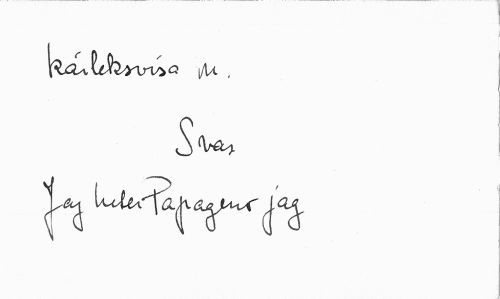 kärleksvisa m.
Svar
Jag heter Papageno jag